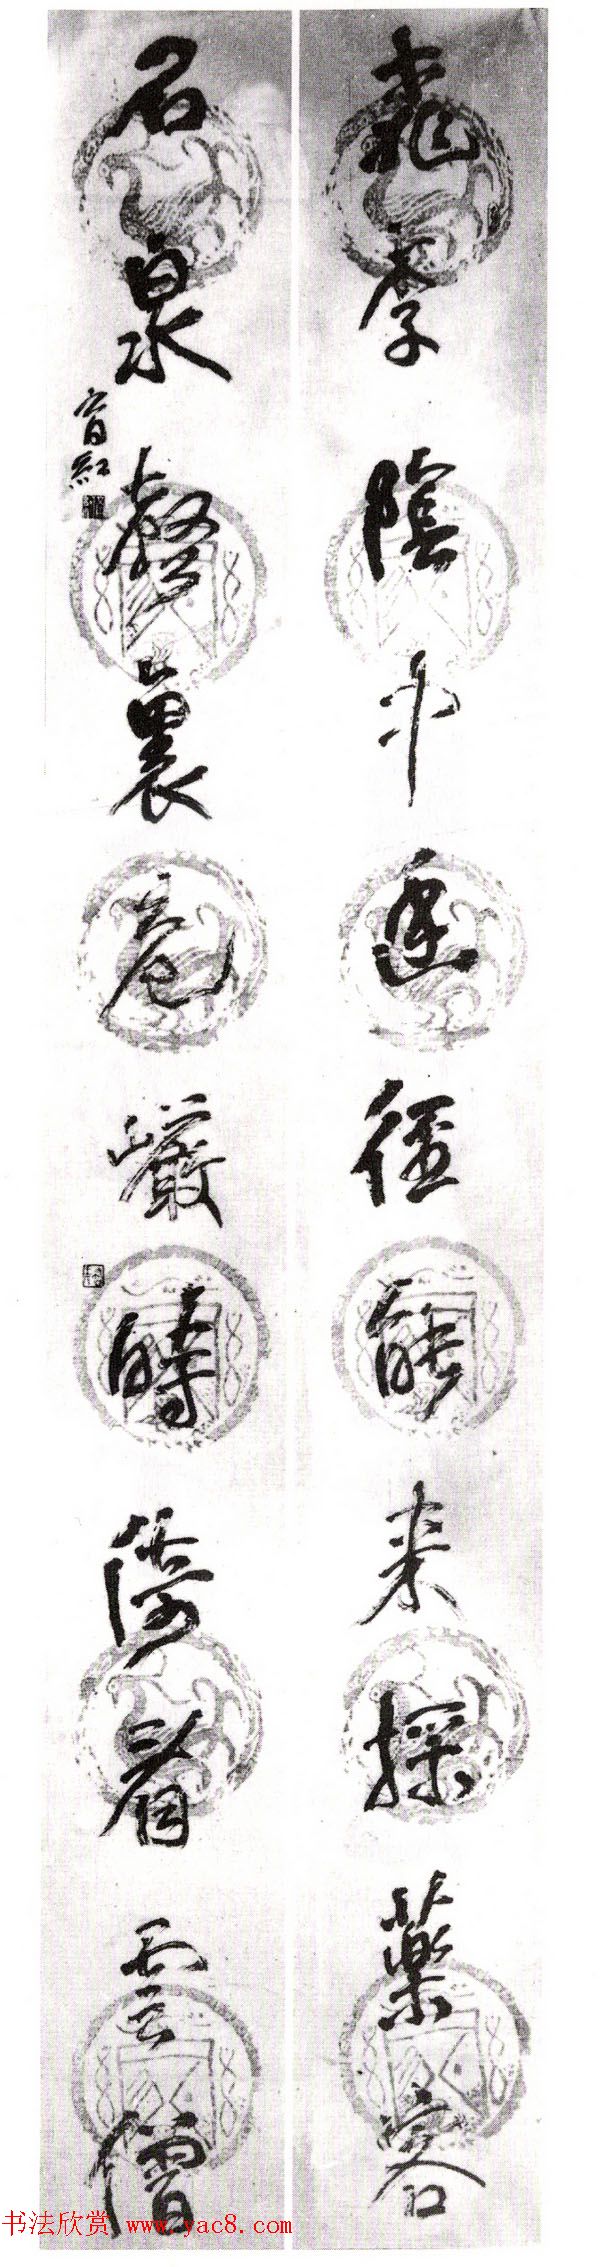 桃李陰中徑能來採藥客
石泉聲裏危巖時倚看雲僧
育紅
书法欣赏 www.yac8.com